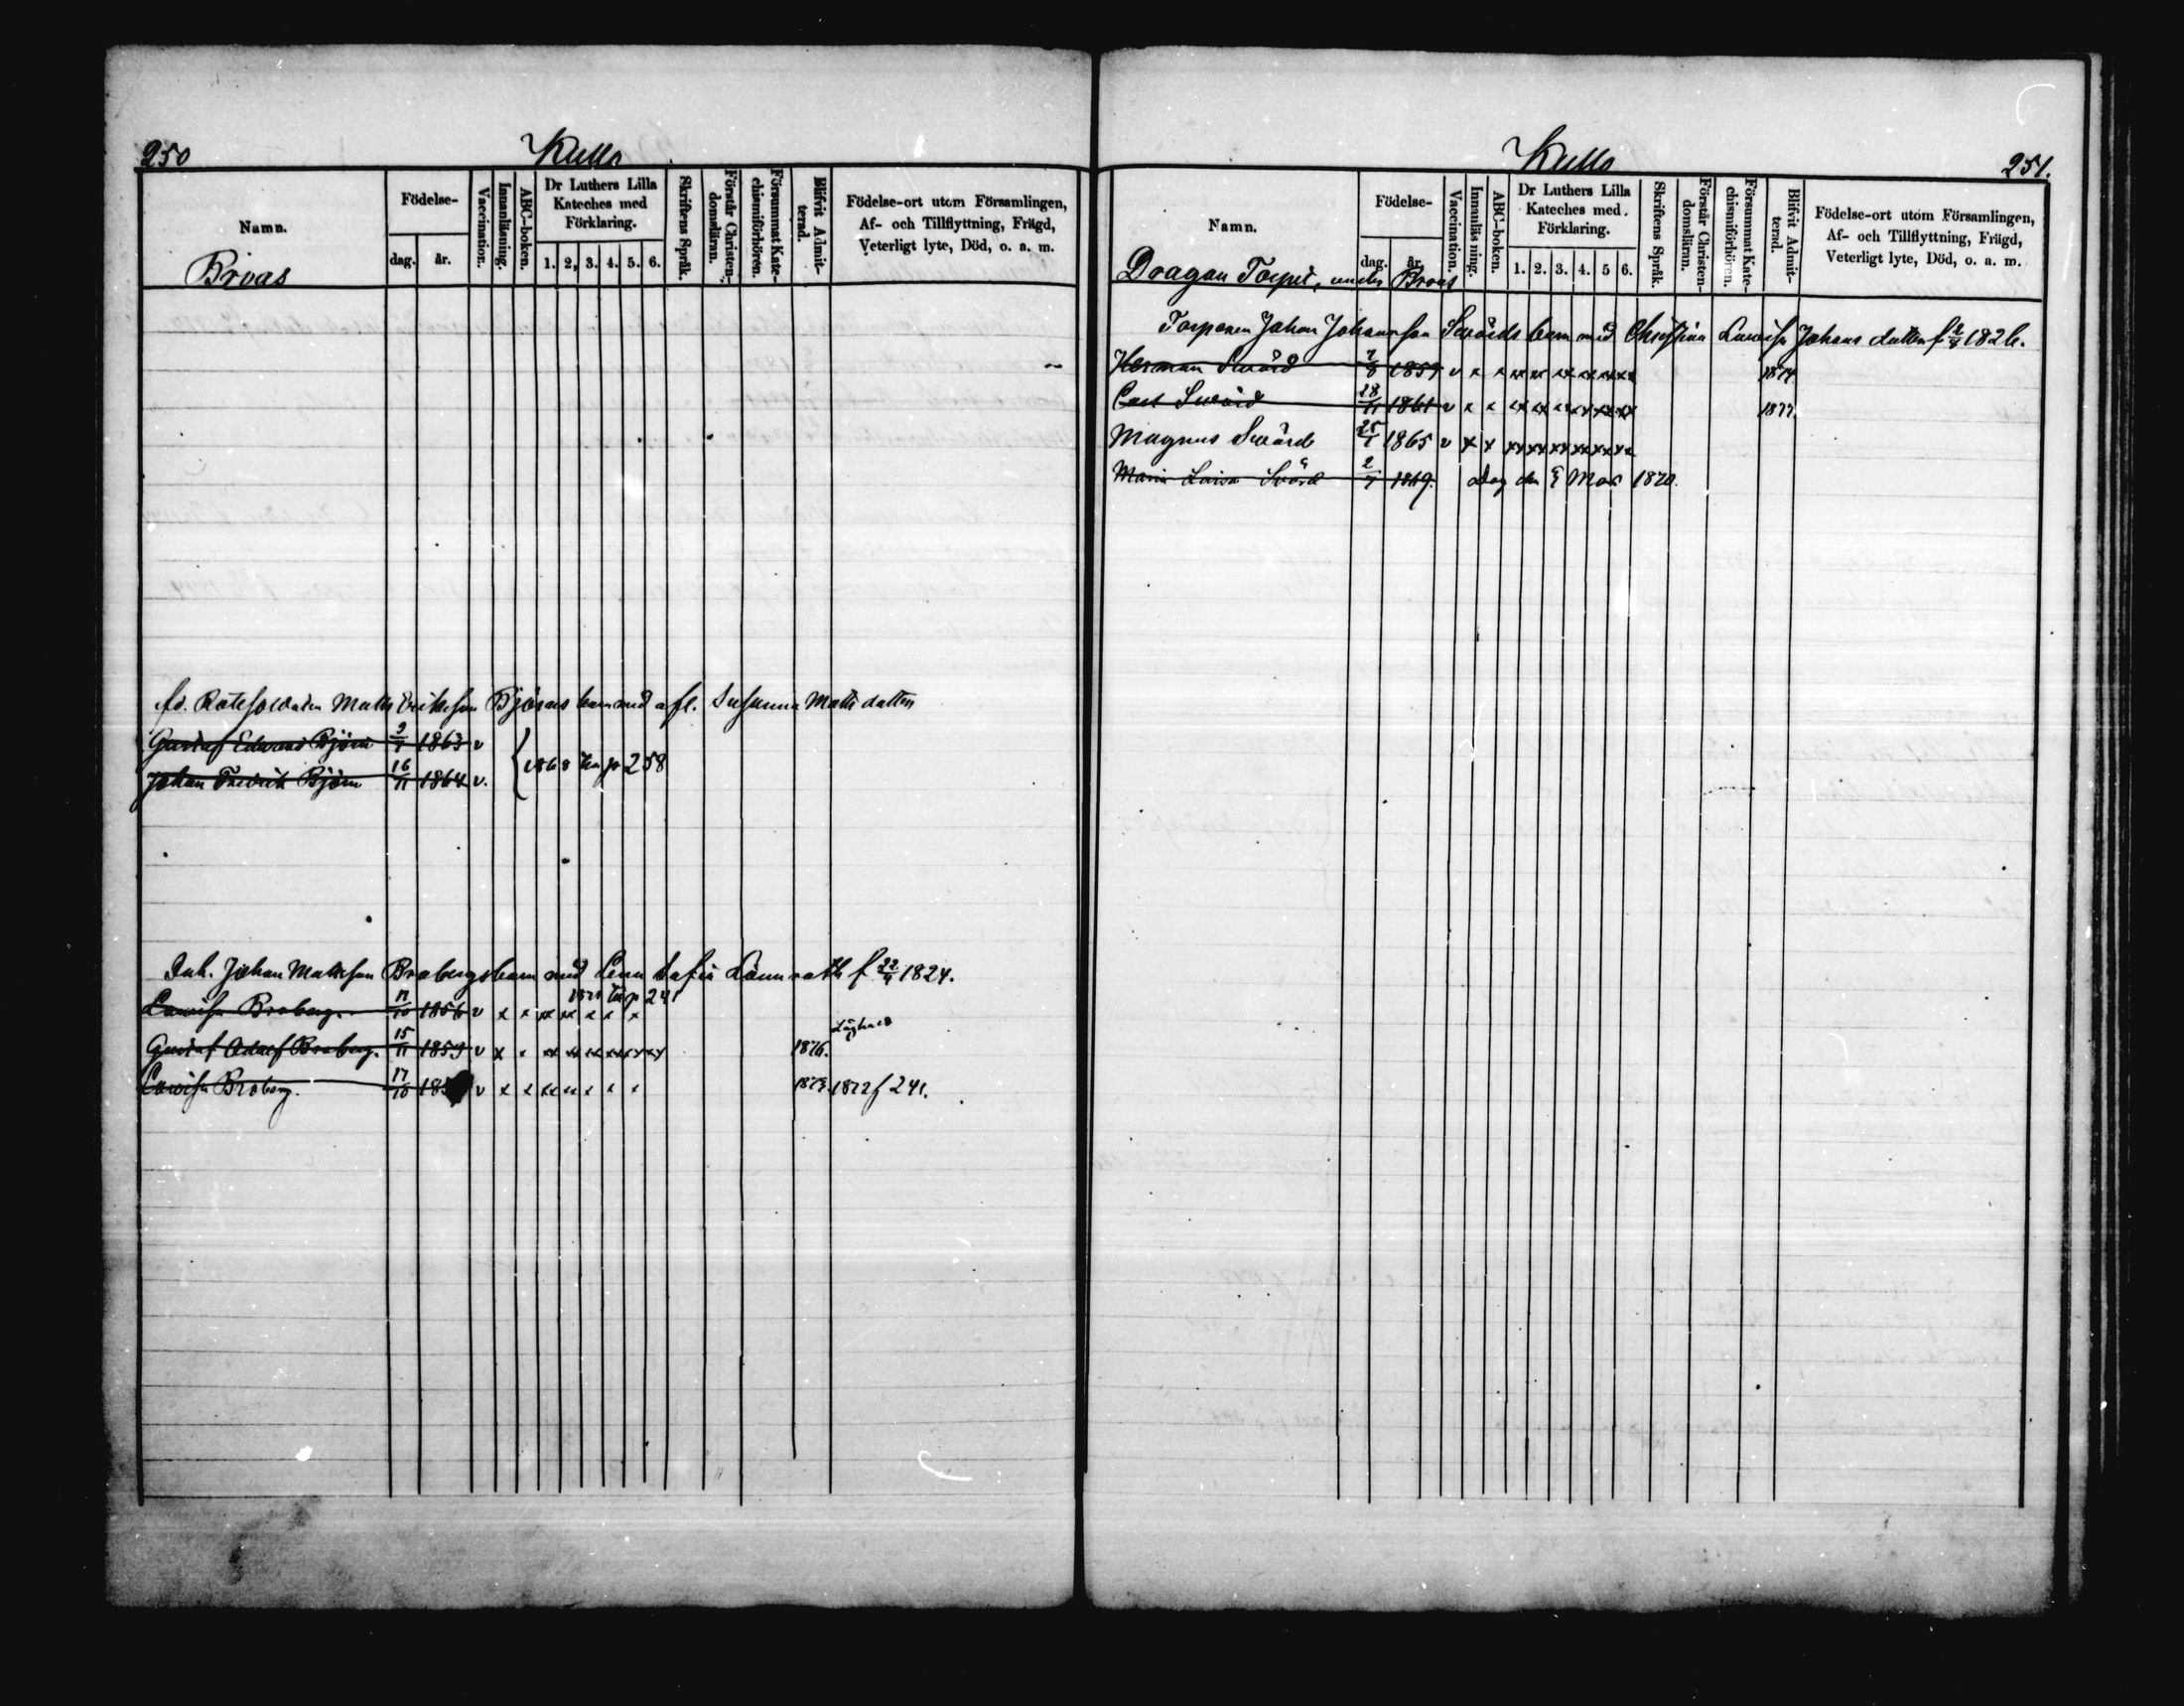 250
Kullo
Namn.
Födelse-
dag. år.
Vaccination.
Innanläsning.
ABC-boken.
Dr Luthers Lilla
Kateches med
Förklaring.
1. 2, 3. 4. 5. 6.
Skriftens Språk.
Förstår Christen-
domsläran.
Försummat Kate-
chismiförhören.
Blifvit Admit-
terad.
Födelse-ort utom Församlingen,
Af- och Tillflyttning, Frägd,
Veterligt lyte, Död, o. a. m.
Broas
fd. Rotesoldaten Matts Eriksson Björns barn med afl. Susanna Matts dotter
Gustaf Edward Björn 1863 v
Johan Fredrik Björn 16/11 1864 v.
1868 p 258
Inh. Johan Mattsson Brobergs barn med Lena Sofia Lönnroth f 22/4 1824.
p 241
Lowisa Broberg. 17/10 1856 v x x xx xx x x x
Gustaf Adolf Broberg. 15/11 1859 v x x xx xx xx xx xx xx 1876.
Lowisa Broberg. 17/10 185 v x x xx xx x x x 1873. 1872 f 241.
Kullo
251.
Namn.
Födelse-
dag. år.
Vaccination.
Innanläsning.
ABC-boken.
Dr Luthers Lilla
Kateches med.
Förklaring.
1. 2. 3. 4. 5 6.
Skriftens Språk.
Förstår Christen-
domsläran.
Försummat Kate-
chismiförhören.
Blifvit Admit-
terad.
Födelse-ort utom Församlingen,
Af- och Tillflyttning, Frägd,
Veterligt lyte, Död, o. a. m.
Dragan Torpet, under Broas
Torparen Johan Johansson Swärds barn med Christina Lowisa Johans dotter f 1826.
Herman Swärd 7/8 1859 v x x xx xx xx xx xx xx 1874.
Carl Swärd 28/11 1861 v x x xx xx xx xx xx xx 1877.
Magnus Swärd 25/1 1865 v x x xx xx xx xx xx xx
Maria Lovisa Svärd 2/7 1869. Dog den Mars 1870.